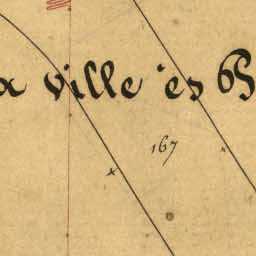 a ville es
167